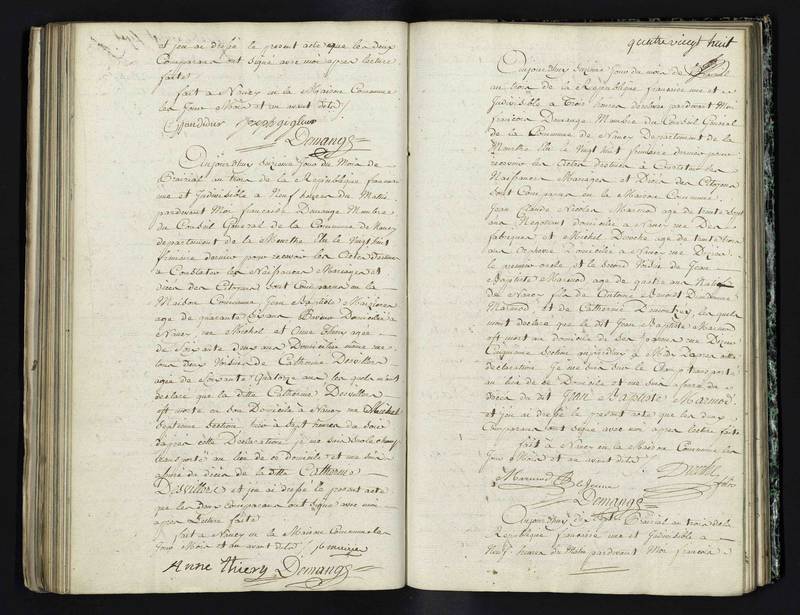 et jeu ai dressé le present acte que les deux
Comparans ont signé avec moi apres lecture
faite
fait à Nancy en la Maison Commune
les Jour Mois et an avant dits
Demange
Aujourd'huy onzieme Jour du Mois de
Prairial an trois de la République francai-
se une et Indivisible a Neuf heures du Matin
pardevant Moi françois Demange Membre
du Conseil General de la Commune de Nancy
departement de la Meurthe Elu le Vingt huit
frimaire dernier pour recevoir les Actes destinés
a Constater les Naissances Mariages et
décès des Citoyens Sont Comparus en la
Maison Commune, Jean Baptiste
age de quarante Six ans Domicilié à
Nancy rue Michel et Anne Thiery agée
de Soixante deux ans Domiciliée même rue
tous deux Voisins de Catherine Desvillers
agée de Soixante Quatorze ans les quels m'ont
declaré que la ditte Catherine Desvillers
est morte en son Domicile à Nancy rue Michel
Septieme Section hier à Sept heures du Soir
d'apres cette Declaration je me suis sur le champ
transporté au lieu de ce domicile et me suis
assuré du décès de la ditte Catherine
Desvillers et jeu ai dressé le present acte
que les deux comparans ont signé avec moi
apres Lecture faite
fait à Nancy en la Maison Commune les
Jour Mois et an avant dits
Anne Thiery Demange
quatre vingt huit
Aujourd'huy onzieme Jour du mois de Prairial
an trois de la République francaise une et
Indivisible à Trois heures pardevant Moi
françois Demange Membre du Conseil General
de la Commune de Nancy Departement de la
Meurthe Elu le Vingt huit frimaire dernier pour
recevoir les Actes destinés à Constater les
Naissances Mariages et Décès des Citoyens
Sont Comparus en la Maison Commune
Jean Claude Nicolas Marmod age de trente Sept
ans Negotiant domicilié à Nancy rue Des
fabriques et Michel age de trente trois
ans Domicilié à Nancy rue
le premier oncle et le Second Voisin de Jean
Baptiste Marmod age de quatre ans Natif
de Nancy fils de
Marmod et de Catherine les quels
mont declaré que le dit Jean Baptiste Marmod
est mort au domicile de
Cinquieme Section à Midy d'apres cette
declaration je me suis sur le Champ transporté
au lieu de ce Domicile et me suis assuré du
décès du dit Jean Baptiste Marmod
et jeu ai dressé le present acte que les deux
Comparans ont signé avec moi apres lecture faite
fait à Nancy en la Maison Commune les
Jour Mois et an avant dits
Marmod
Demange
Aujourd'huy dix Sept Prairial an trois de la
République francaise une et Indivisible à
Neuf heures du Matin pardevant Moi francois